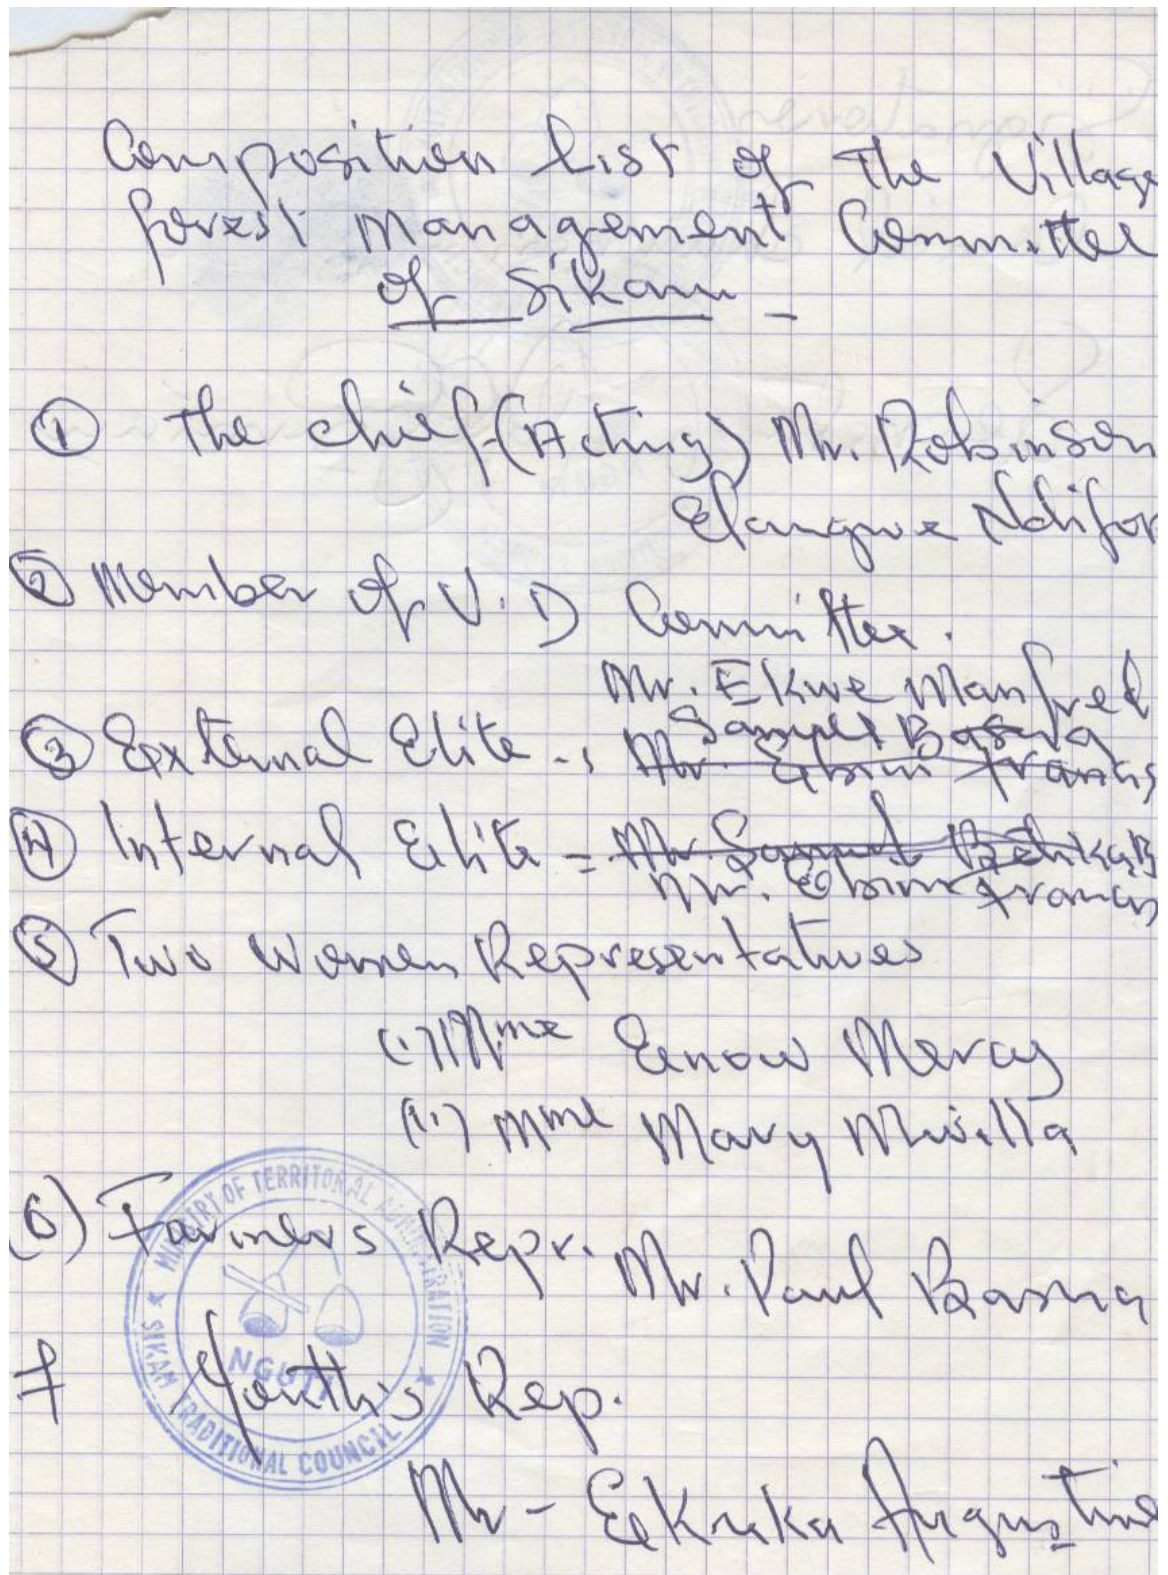 Composition list of the Village
forest Management Committee
of Sikam -
① The chief (Acting) Mr. Robinson
Elangwe Ndifor
② Member of V.D Committee.
Mr. Ekwe Manfred
③ External Elite -, Samuel Basua
Mr. Ebini Francis
④ Internal Elite = Mr. Samuel
Mr. Ebini Francis
⑤ Two Women Representatives
(i) Mme Enow Mercy
(ii) Mme Mary
(6) Farmers Repr. Mr. Paul
7 Youth's Rep.
Mr - Augustine
MINISTRY OF TERRITORIAL ADMINISTRATION
NGUTI
SIKAM TRADITIONAL COUNCIL